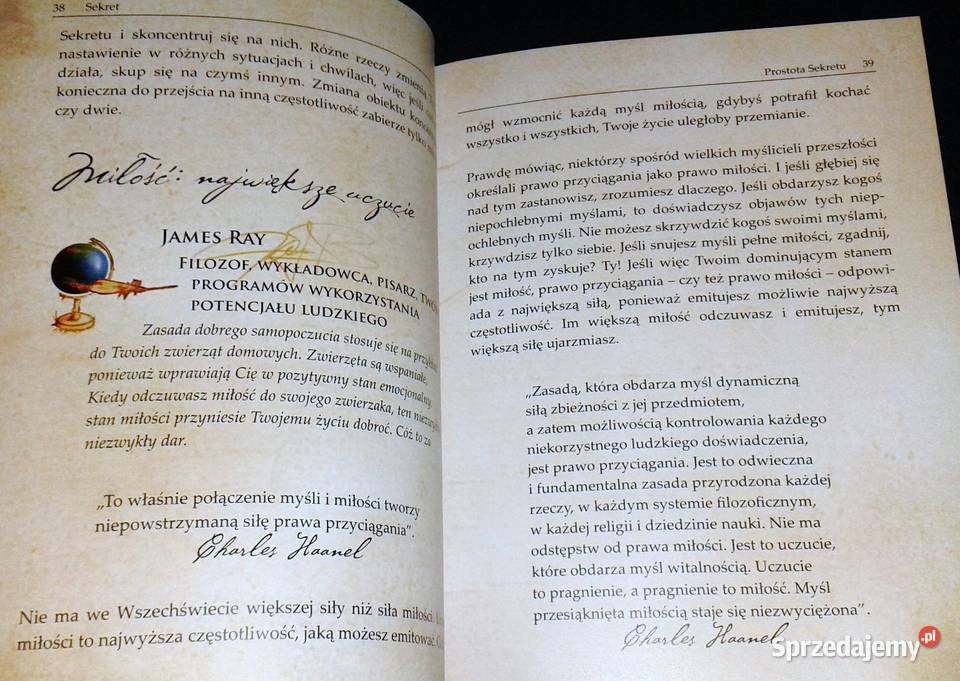 38 Sekret
Sekretu i skoncentruj się na nich. Różne rzeczy zmienią
nastawienie w różnych sytuacjach i chwilach, więc jeśli
działa, skup się na czymś innym. Zmiana obiektu
konieczna do przejścia na inną częstotliwość zabierze tylko
czy dwie.
Miłość: największe uczucie
James Ray
Filozof, wykładowca, pisarz,
programów wykorzystania
potencjału ludzkiego
Zasada dobrego samopoczucia stosuje się na
do Twoich zwierząt domowych. Zwierzęta są wspaniałe,
ponieważ wprawiają Cię w pozytywny stan emocjonalny
Kiedy odczuwasz miłość do swojego zwierzaka, ten
stan miłości przyniesie Twojemu życiu dobroć. Cóż to za
niezwykły dar.
„To właśnie połączenie myśli i miłości tworzy
niepowstrzymaną siłę prawa przyciągania”.
Charles Haanel
Nie ma we Wszechświecie większej siły niż siła miłości.
miłości to najwyższa częstotliwość, jaką możesz emitować.
Prostota Sekretu 39
mógł wzmocnić każdą myśl miłością, gdybyś potrafił kochać
wszystko i wszystkich, Twoje życie uległoby przemianie.
Prawdę mówiąc, niektórzy spośród wielkich myślicieli przeszłości
określali prawo przyciągania jako prawo miłości. I jeśli głębiej się
nad tym zastanowisz, zrozumiesz dlaczego. Jeśli obdarzysz kogoś
niepochlebnymi myślami, to doświadczysz objawów tych niep-
ochlebnych myśli. Nie możesz skrzywdzić kogoś swoimi myślami,
krzywdzisz tylko siebie. Jeśli snujesz myśli pełne miłości, zgadnij,
kto na tym zyskuje? Ty! Jeśli więc Twoim dominującym stanem
jest miłość, prawo przyciągania – czy też prawo miłości – odpowi-
ada z największą siłą, ponieważ emitujesz możliwie najwyższą
częstotliwość. Im większą miłość odczuwasz i emitujesz, tym
większą siłę ujarzmiasz.
„Zasadą, która obdarza myśl dynamiczną
siłą zbieżności z jej przedmiotem,
a zatem możliwością kontrolowania każdego
niekorzystnego ludzkiego doświadczenia,
jest prawo przyciągania. Jest to odwieczna
i fundamentalna zasada przyrodzona każdej
rzeczy, w każdym systemie filozoficznym,
w każdej religii i dziedzinie nauki. Nie ma
odstępstw od prawa miłości. Jest to uczucie,
które obdarza myśl witalnością. Uczucie
to pragnienie, a pragnienie to miłość. Myśl
przesiąknięta miłością staje się niezwyciężona”.
Charles Haanel
Sprzedajemy.pl